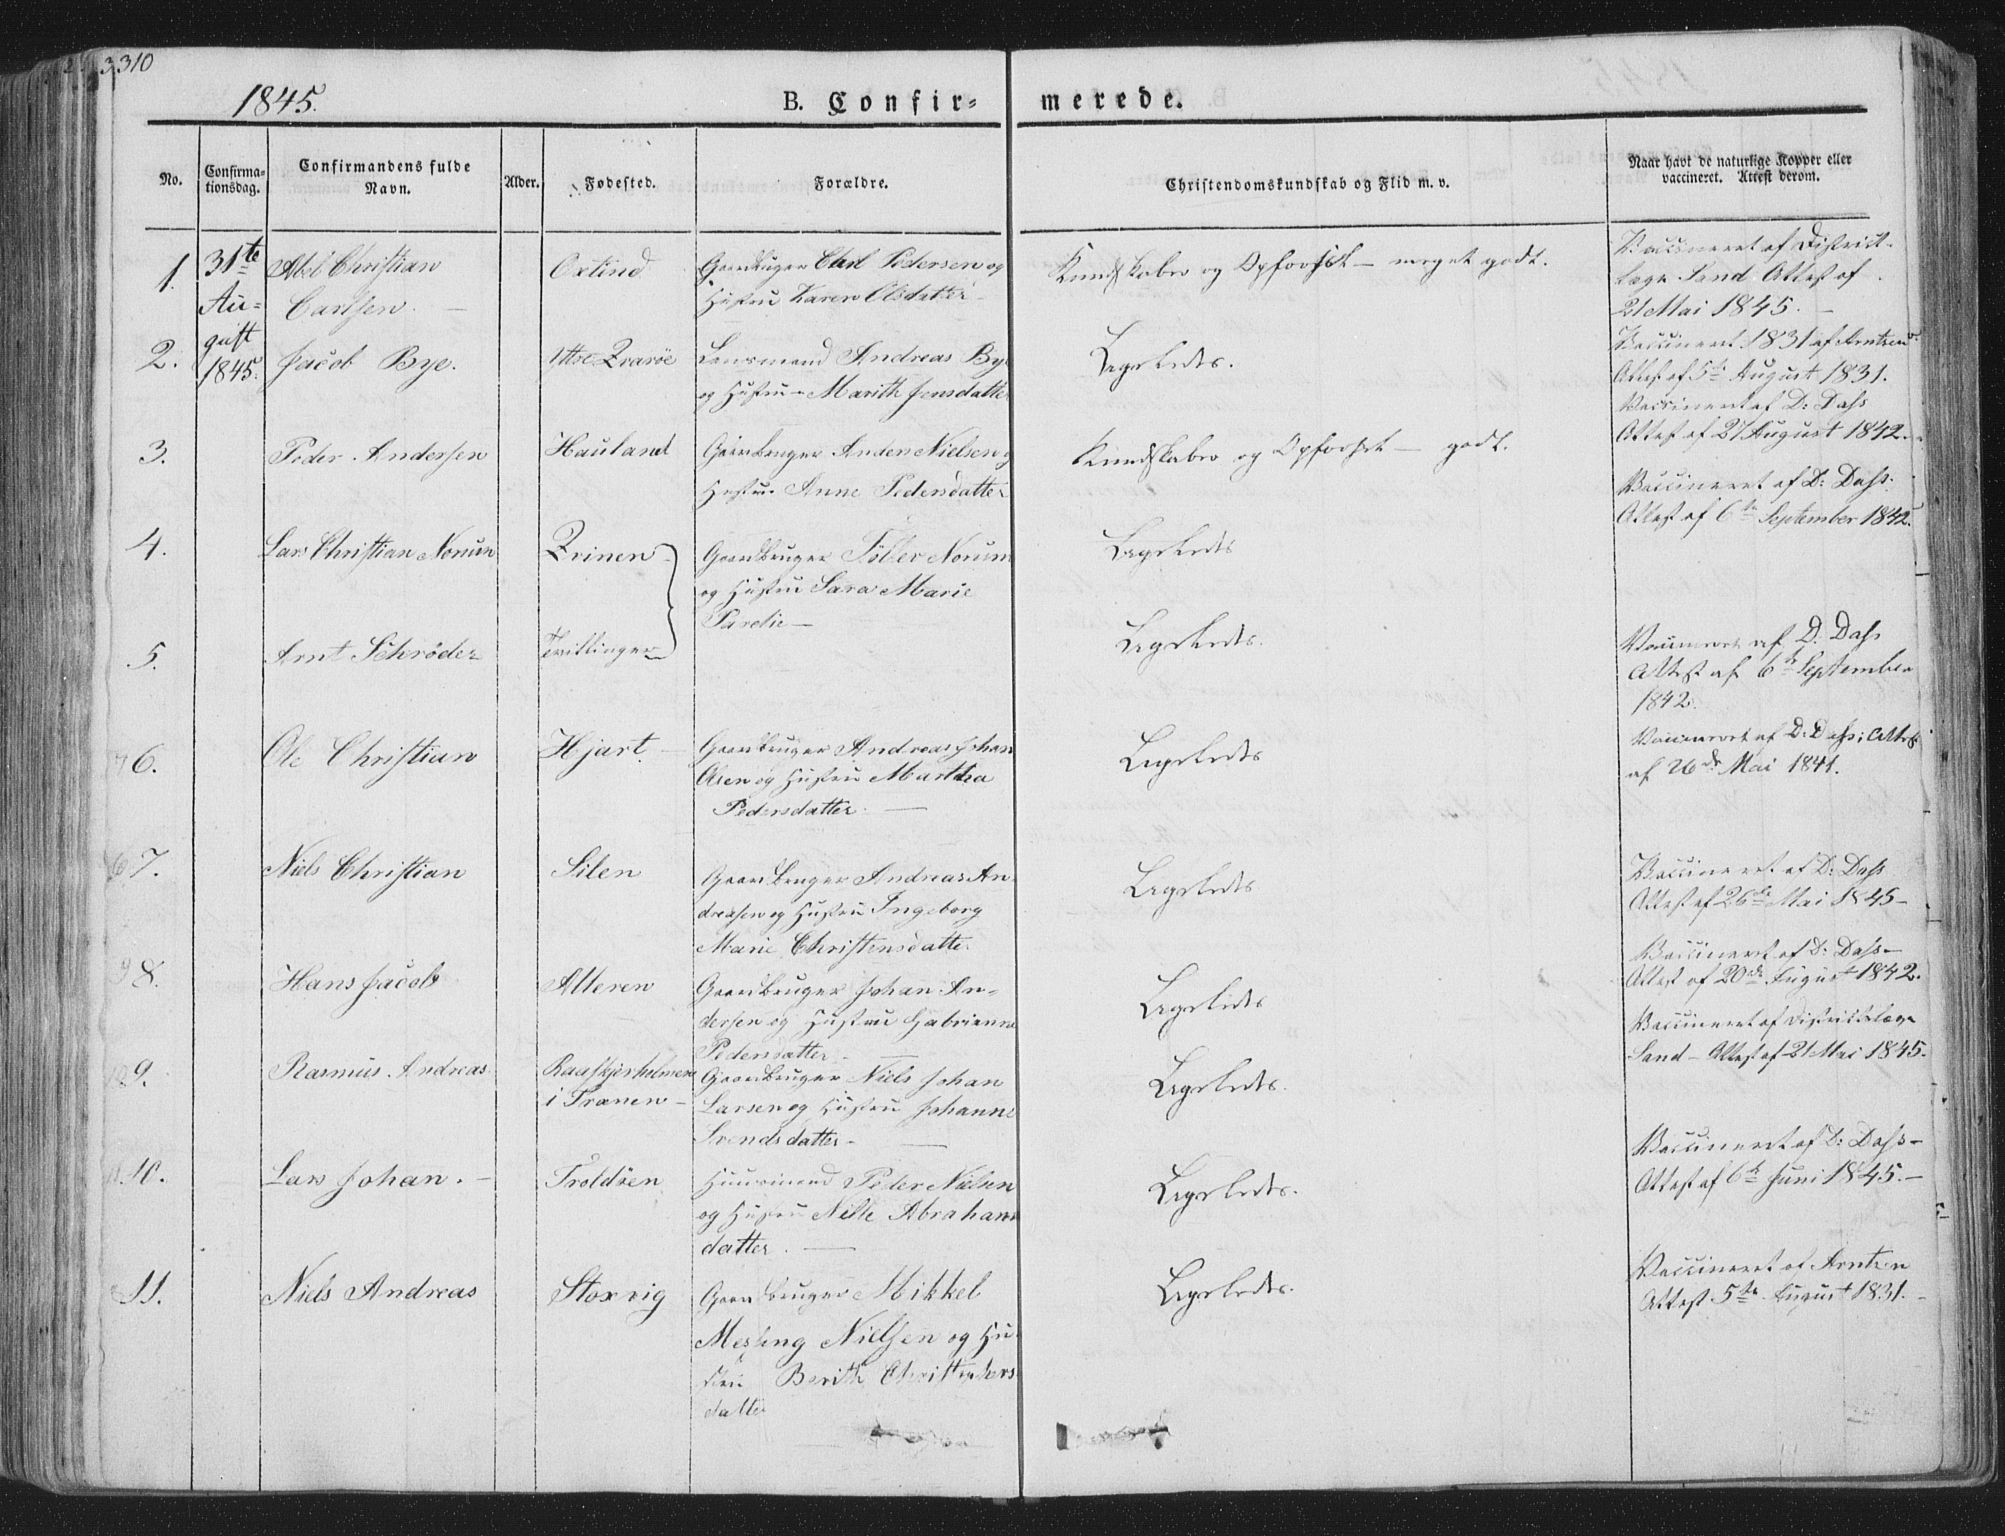 310
1845.
B. Confir-
merede.
No.
Confirma-
tionsdag.
Confirmandens fulde
Navn.
Alder.
Fødested.
Forældre.
Christendomskundskab og Flid m. v.
Naar havt de naturlige Kopper eller
vaccineret. Attest derom.
1.
31te
Au-
gust
1845.
Abel Christian
Carlsen.
Oxtind
Gaardbruger Carl Pedersen og
Hustru Karen Olsdatter
Kundskaber og Opførsel – meget godt.
Vaccineret af District-
læge Sand Attest af
21 Mai 1845.
2.
Jacob Bye.
Lensmand Andreas Bye
og Hustru Marith Jensdatter
Ligeledes.
Vaccineret 1831 af Arntzen
Attest af 5te August 1831.
3.
Peder Andersen
Hauland
Gaardbruger Anders Nielsen og
Hustru Anne Pedersdatter
Kundskaber og Opførsel – godt.
Vaccineret af D: Dass
Attest af 27 August 1842.
4.
Lars Christian Norum
Zrinen
Gaardbruger Norum
og Hustru Sara Marie
Parelie –
Ligeledes
Vaccineret af D: Dass.
Attest af 6te September 1842.
5.
Arnt Schrøder
Tvillinger
Ligeledes.
Vaccineret af D. Dass
Attest af 6te September
1842.
6.
Ole Christian
Hjart
Gaardbruger Andreas Johan
Olsen og Hustru Martha
Pedersdatter.
Ligeledes
Vaccineret af D: Dass; Attest
af 26de Mai 1841.
7.
Niels Christian
Silen
Gaardbruger Andreas An-
dreasen og Hustru Ingeborg
Marie Christensdatter
Ligeledes
Vaccineret af D: Dass
Attest af 26de Mai 1845 –
8.
Hans Jacob
Alteren
Gaardbruger Johan An-
dersen og Hustru Gabrianna
Pedersdatter –
Ligeledes
Vaccineret af D: Dass –
Attest af 20de August 1842.
9.
Rasmus Andreas
i Trænen –
Gaardbruger Niels Johan
Larsen og Hustru Johanne
Svendsdatter –
Ligeledes.
Vaccineret af Districtslæge
Sand – Attest af 21 Mai 1845.
10.
Lars Johan. –
Troldøen
Huusmand Peder Nielsen
og Hustru Nille Abrahams
datter. –
Ligeledes.
Vaccineret af D: Dass –
Attest af 6te Juni 1845. –
11.
Niels Andreas
Storvig
Gaardbruger Mikkel
Nielsen og Hu-
stru Berith
datter
Ligeledes.
Vaccineret af Arntzen
Attest 5te August 1831. –